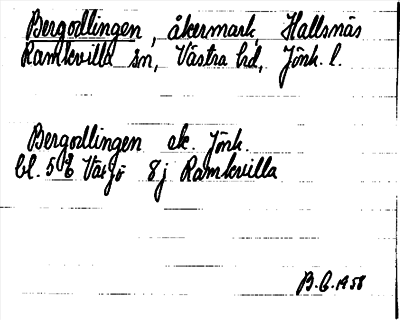 Bergodlingen, åkermark Hallsnäs
Ramkvilla sn, Västra hd, Jönk. l.
Bergodlingen ek. Jönk.
bl. 5 E Växjö 8j Ramkvilla
B.G. 1958